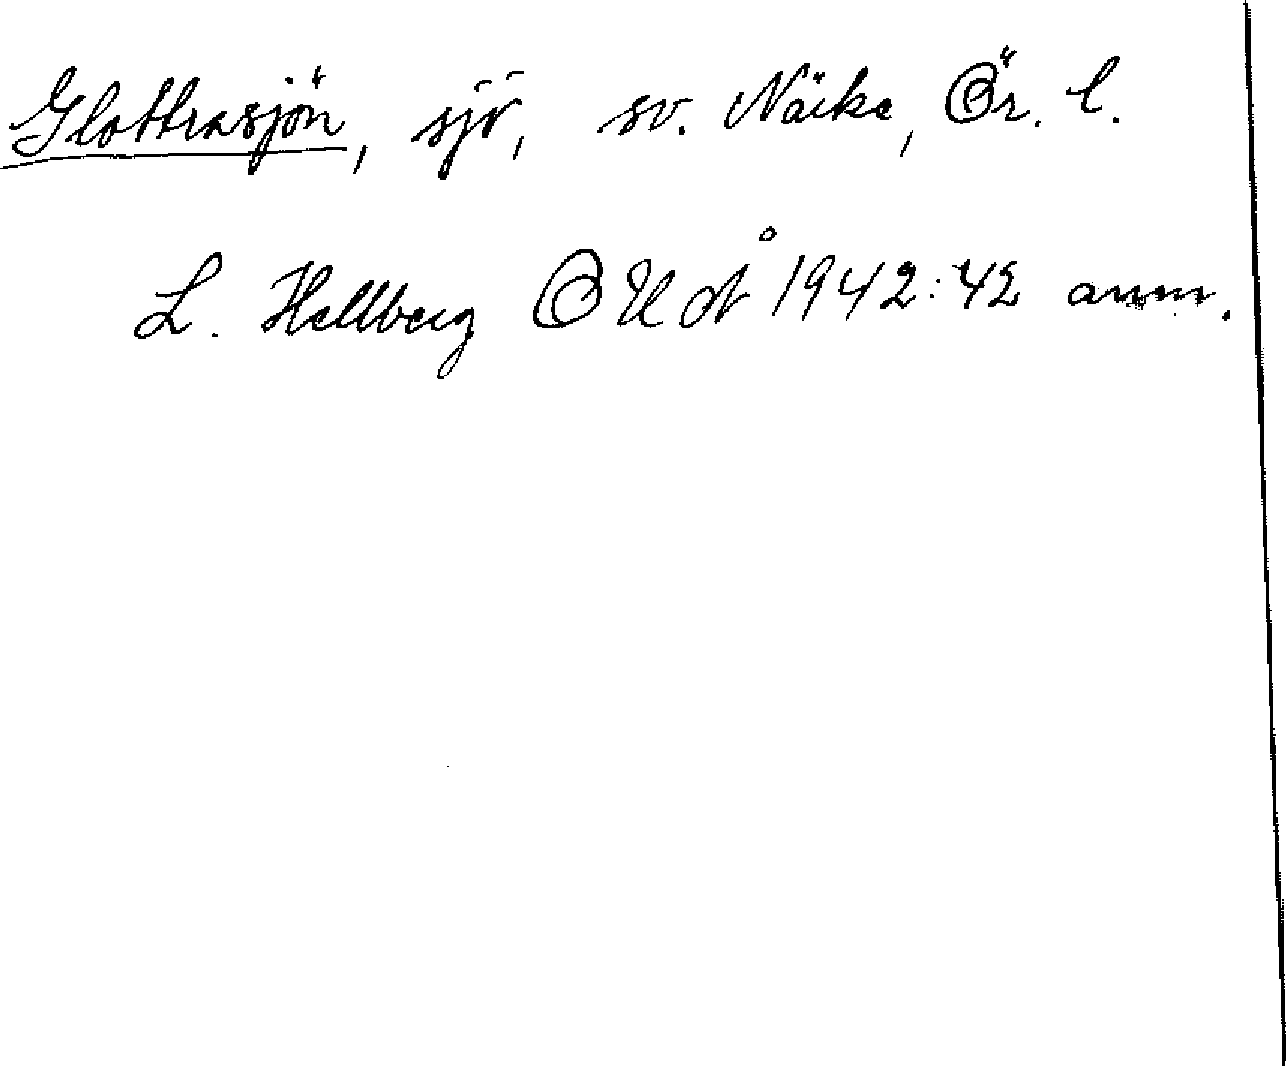 Glottrasjön, sjö, sv. Närke, Ör. l.
L. Hellberg OUÅ 1942:42 anm.